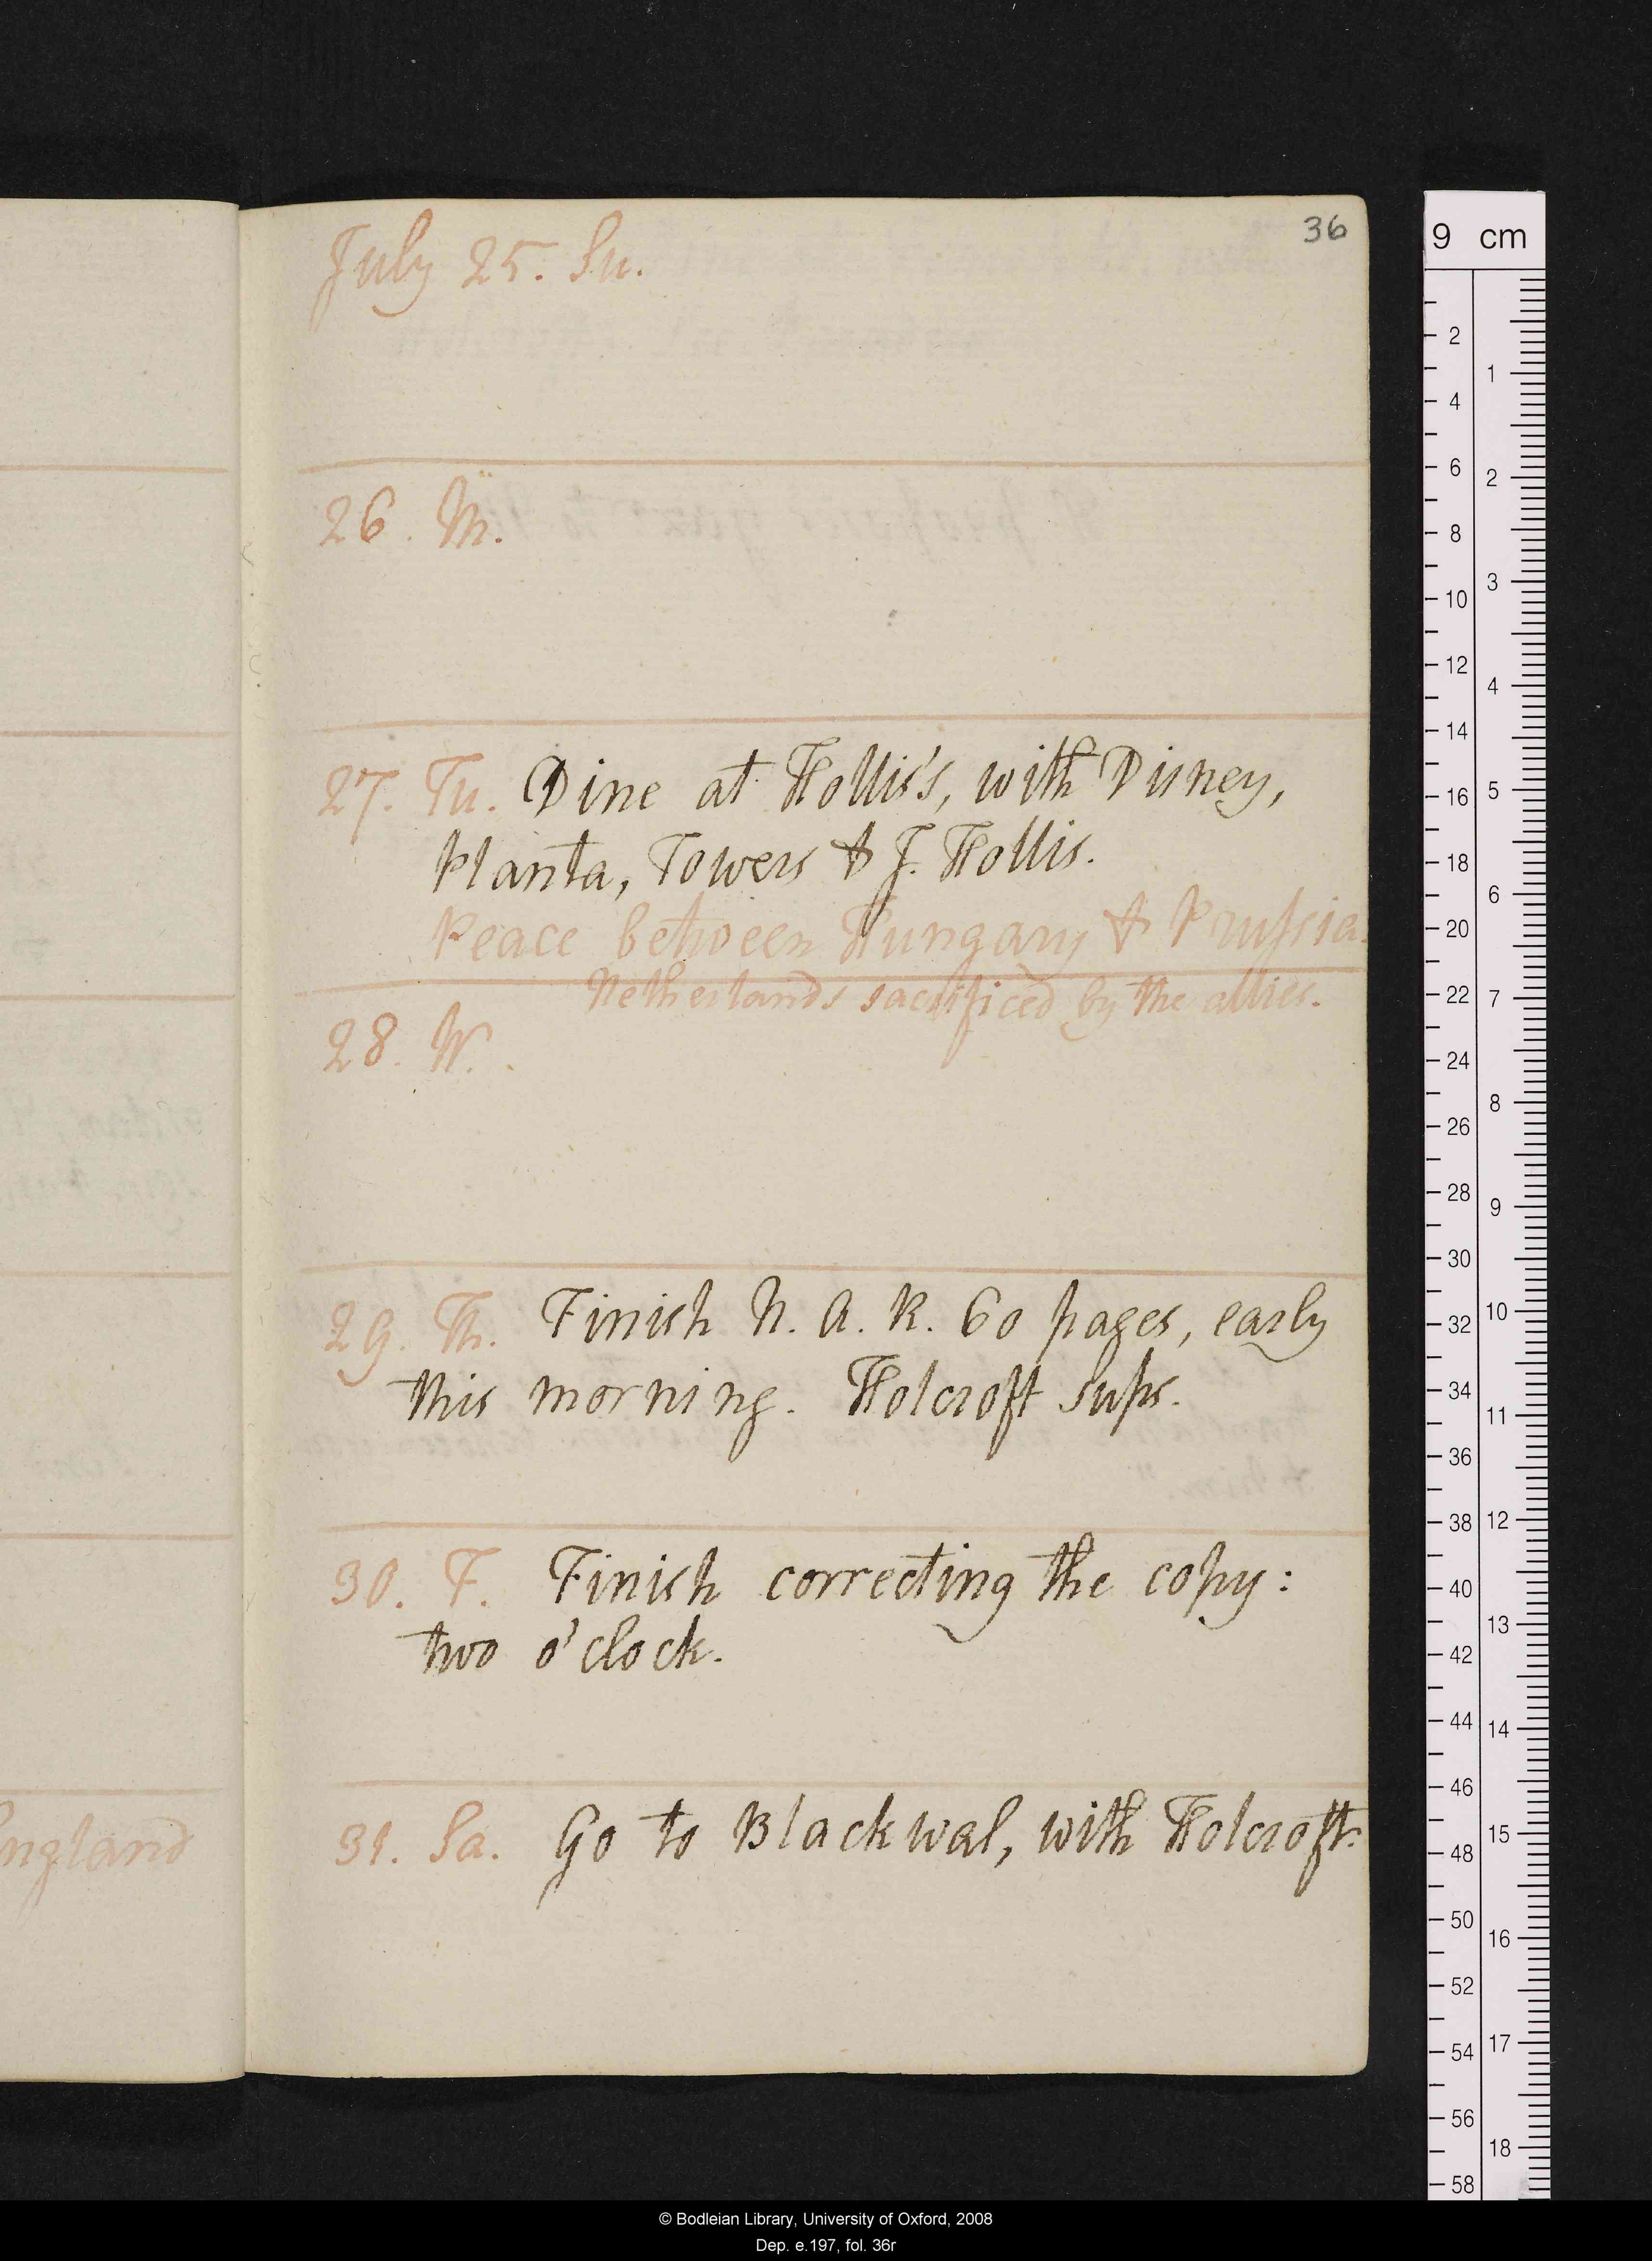 36
July 25. Su.
26. M.
27. Tu. Dine at Hollis's, with Disney,
Planta, Towers & J. Hollis.
Peace between Hungary & Prussia.
Netherlands sacrificed by the allies.
28. W.
29. Th. Finish N. A. R. 60 pages, early
this morning. Holcroft sups.
30. F. Finish correcting the copy:
two o'clock.
31. Sa. Go to Blackwal, with Holcroft.
ngland
9 cm
2
4
6
8
10
12
14
16
18
20
22
24
26
28
30
32
34
36
38
40
42
44
46
48
50
52
54
56
58
1
2
3
4
5
6
7
8
9
10
11
12
13
14
15
16
17
18
© Bodleian Library, University of Oxford, 2008
Dep. e.197, fol. 36r